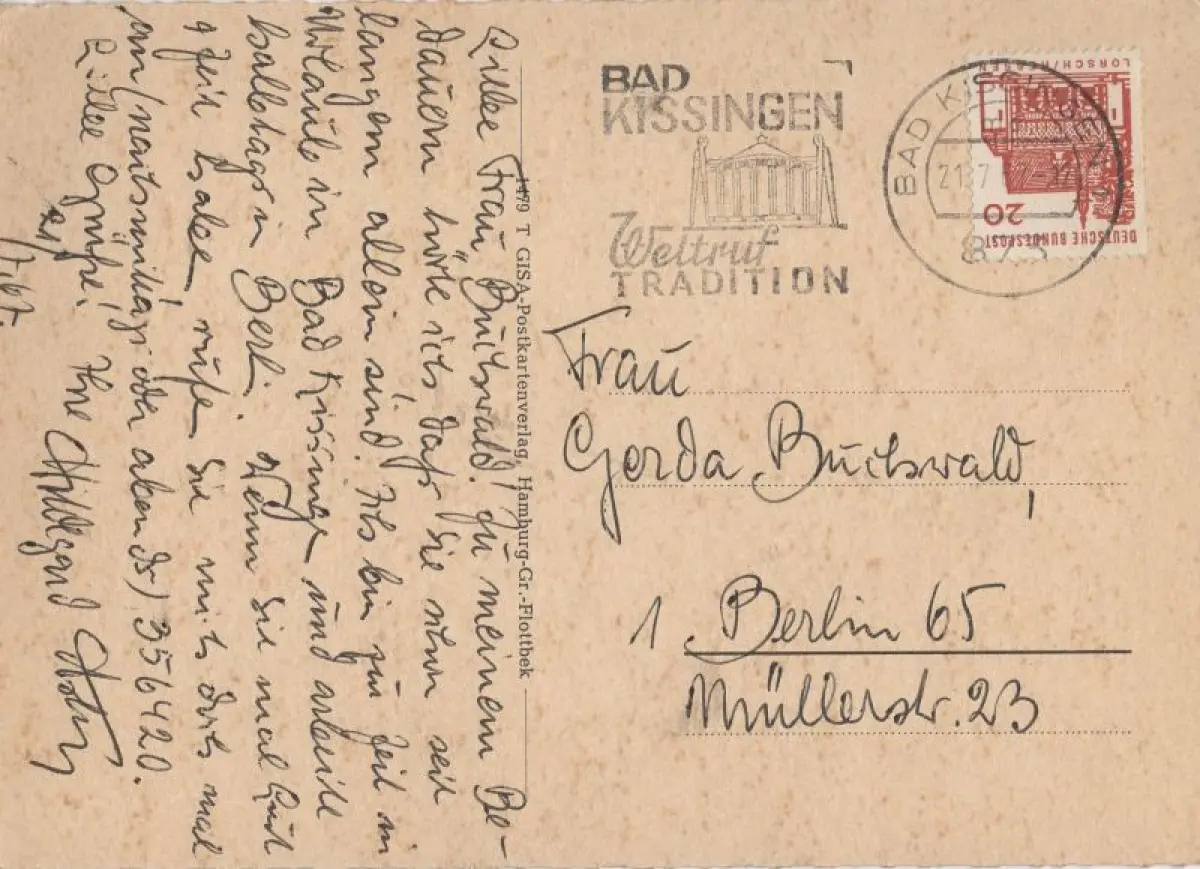 Liebe Frau Buchwald! Zu meinem Be-
dauern hörte ich daß Sie schon seit
langem allein sind. Ich bin zur Zeit in
Urlaub in Bad Kissingen und arbeite
halbtags in Berlin. Wenn Sie mal Lust
u Zeit haben, rufen Sie mich doch mal
an (nachmittags oder abends) 356420.
Liebe Grüße! Ihre Hildegard
21/7.67.
1479 T GISA-Postkartenverlag, Hamburg-Gr.-Flottbek
BAD
KISSINGEN
Weltruf
TRADITION
BAD KISSINGEN
21.7.
873
LORSCH/HESSEN
20
DEUTSCHE BUNDESPOST
Frau
Gerda Buchwald,
1 Berlin 65
Müllerstr. 23